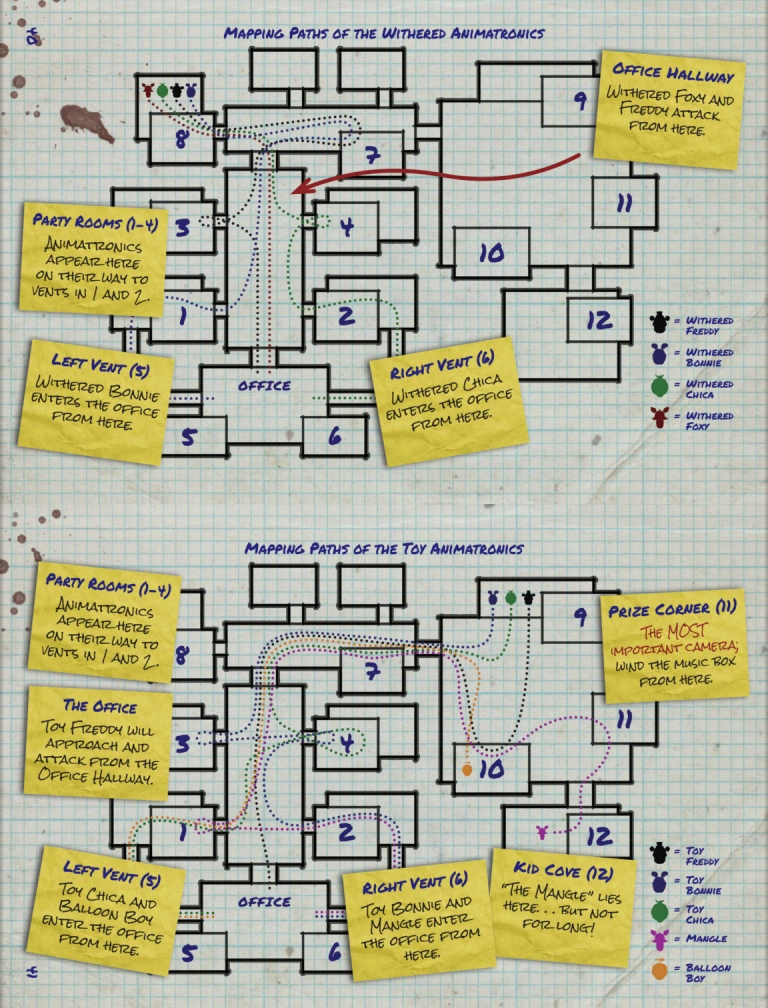 Mapping Paths of the Withered Animatronics
Office Hallway
Withered Foxy and
Freddy attack
from here.
8
7
9
3
4
11
10
1
2
12
Party Rooms (1-4)
Animatronics
appear here
on their way to
vents in 1 and 2.
= Withered
Freddy
= Withered
Bonnie
= Withered
Chica
= Withered
Foxy
Left Vent (5)
Withered Bonnie
enters the office
from here.
Right Vent (6)
Withered Chica
enters the office
from here.
Office
5
6
Mapping Paths of the Toy Animatronics
Party Rooms (1-4)
Animatronics
appear here
on their way to
vents in 1 and 2.
8
7
9
Prize Corner (11)
The MOST
important camera;
wind the music box
from here.
The Office
Toy Freddy will
approach and
attack from the
Office Hallway.
3
4
11
10
1
2
12
Left Vent (5)
Toy Chica and
Balloon Boy
enter the office
from here.
Right Vent (6)
Toy Bonnie and
Mangle enter
the office from
here.
Kid Cove (12)
"The Mangle" lies
here...but not
for long!
Office
5
6
= Toy
Freddy
= Toy
Bonnie
= Toy
Chica
= Mangle
= Balloon
Boy